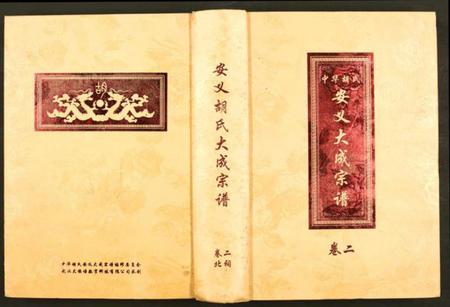 胡
中华胡氏安义大成宗谱编修委员会
安义胡氏大成宗谱
卷二
北祠
中华胡氏
安义大成宗谱
卷二